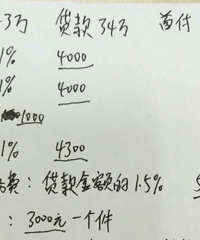 3万 贷款34万 首付
1% 4000
1% 4000
1000
1% 4300
费: 贷款金额的1.5% 5
: 3000元一个件